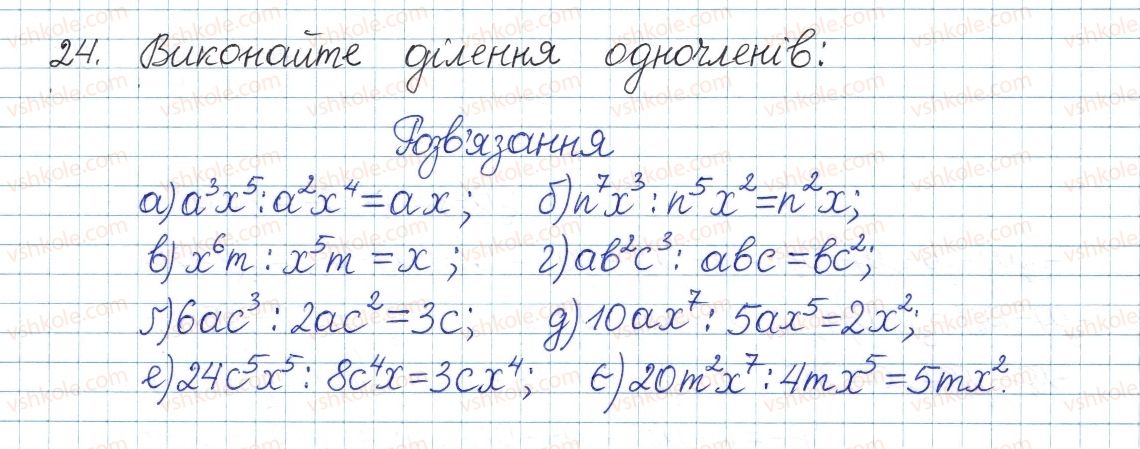 24. Виконайте ділення одночленів:
Розв'язання
а) a³x⁵ : a²x⁴ = ax; б) n⁷x³ : n⁵x² = n²x;
в) x⁶m : x⁵m = x; г) ab²c³ : abc = bc²;
ґ) 6ac³ : 2ac² = 3c; д) 10ax⁷ : 5ax⁵ = 2x²;
е) 24c⁵x⁵ : 8c⁴x = 3cx⁴; є) 20m²x⁷ : 4mx⁵ = 5mx².